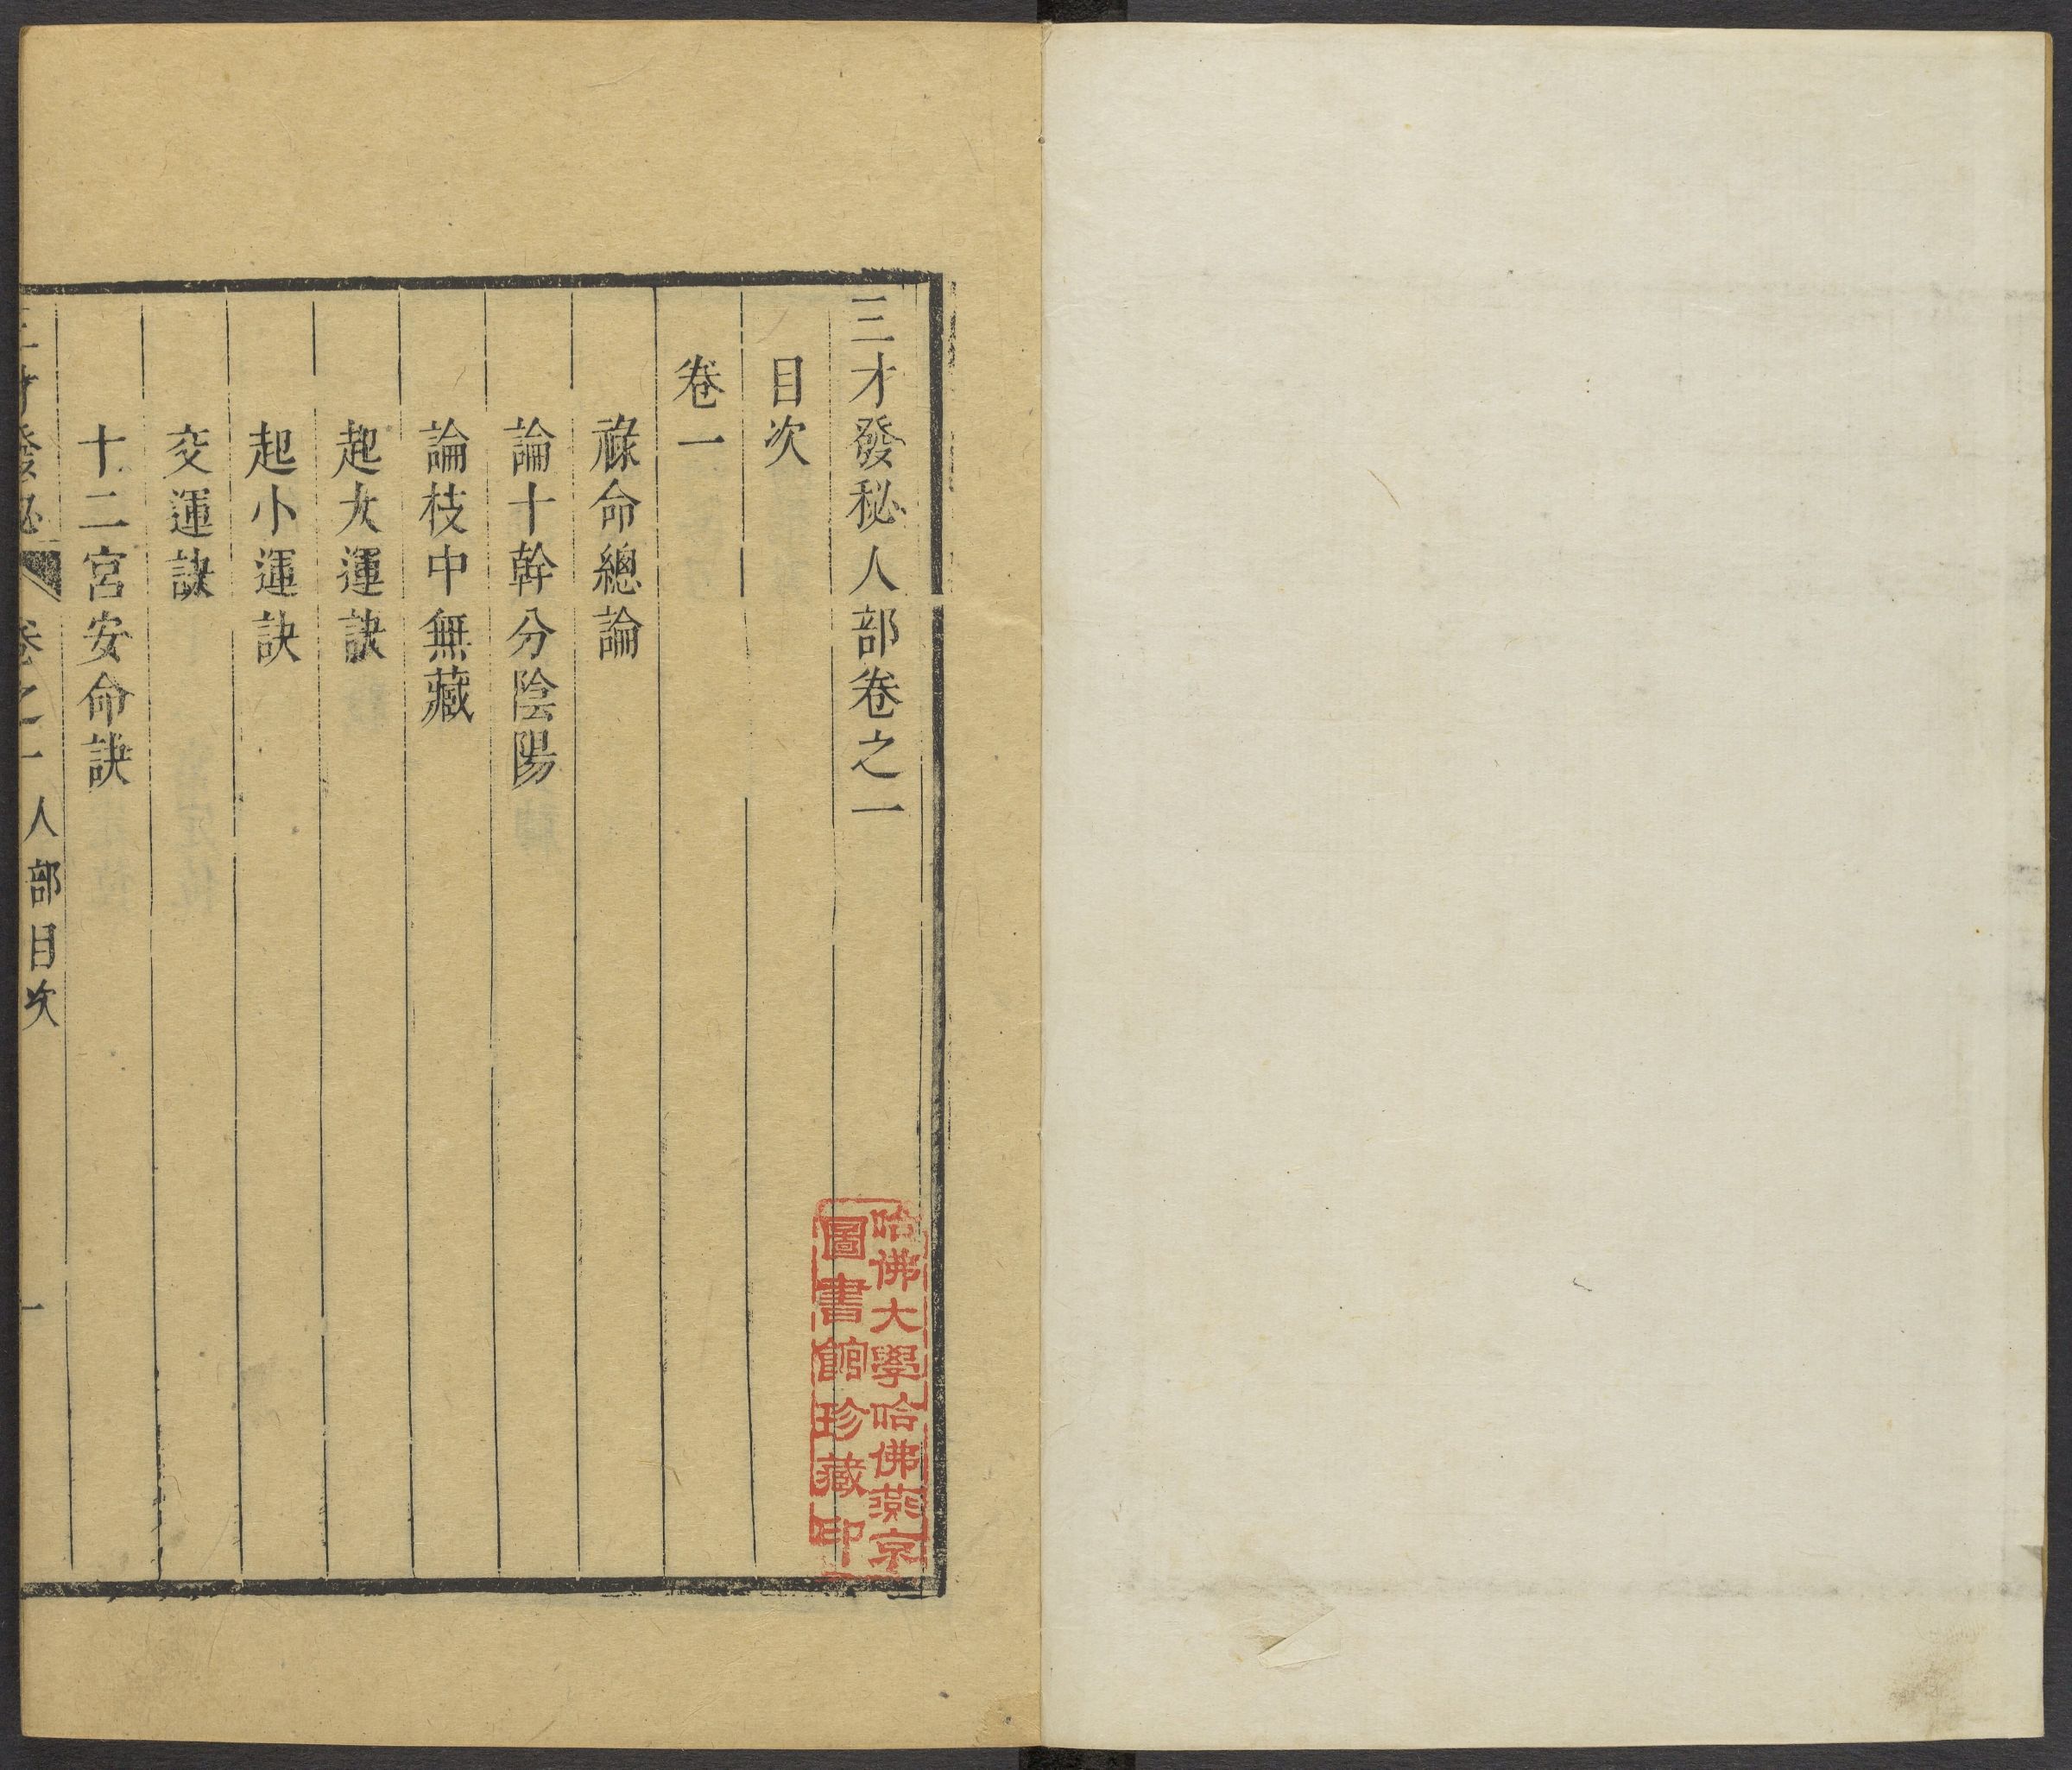 三才發秘人部卷之一
目次
卷一
祿命總論
論十幹分陰陽
論枝中無藏
起大運訣
起小運訣
交運訣
十二宮安命訣
三才發秘 卷之一 人部目次 一
哈佛大學哈佛燕京
圖書館珍藏印